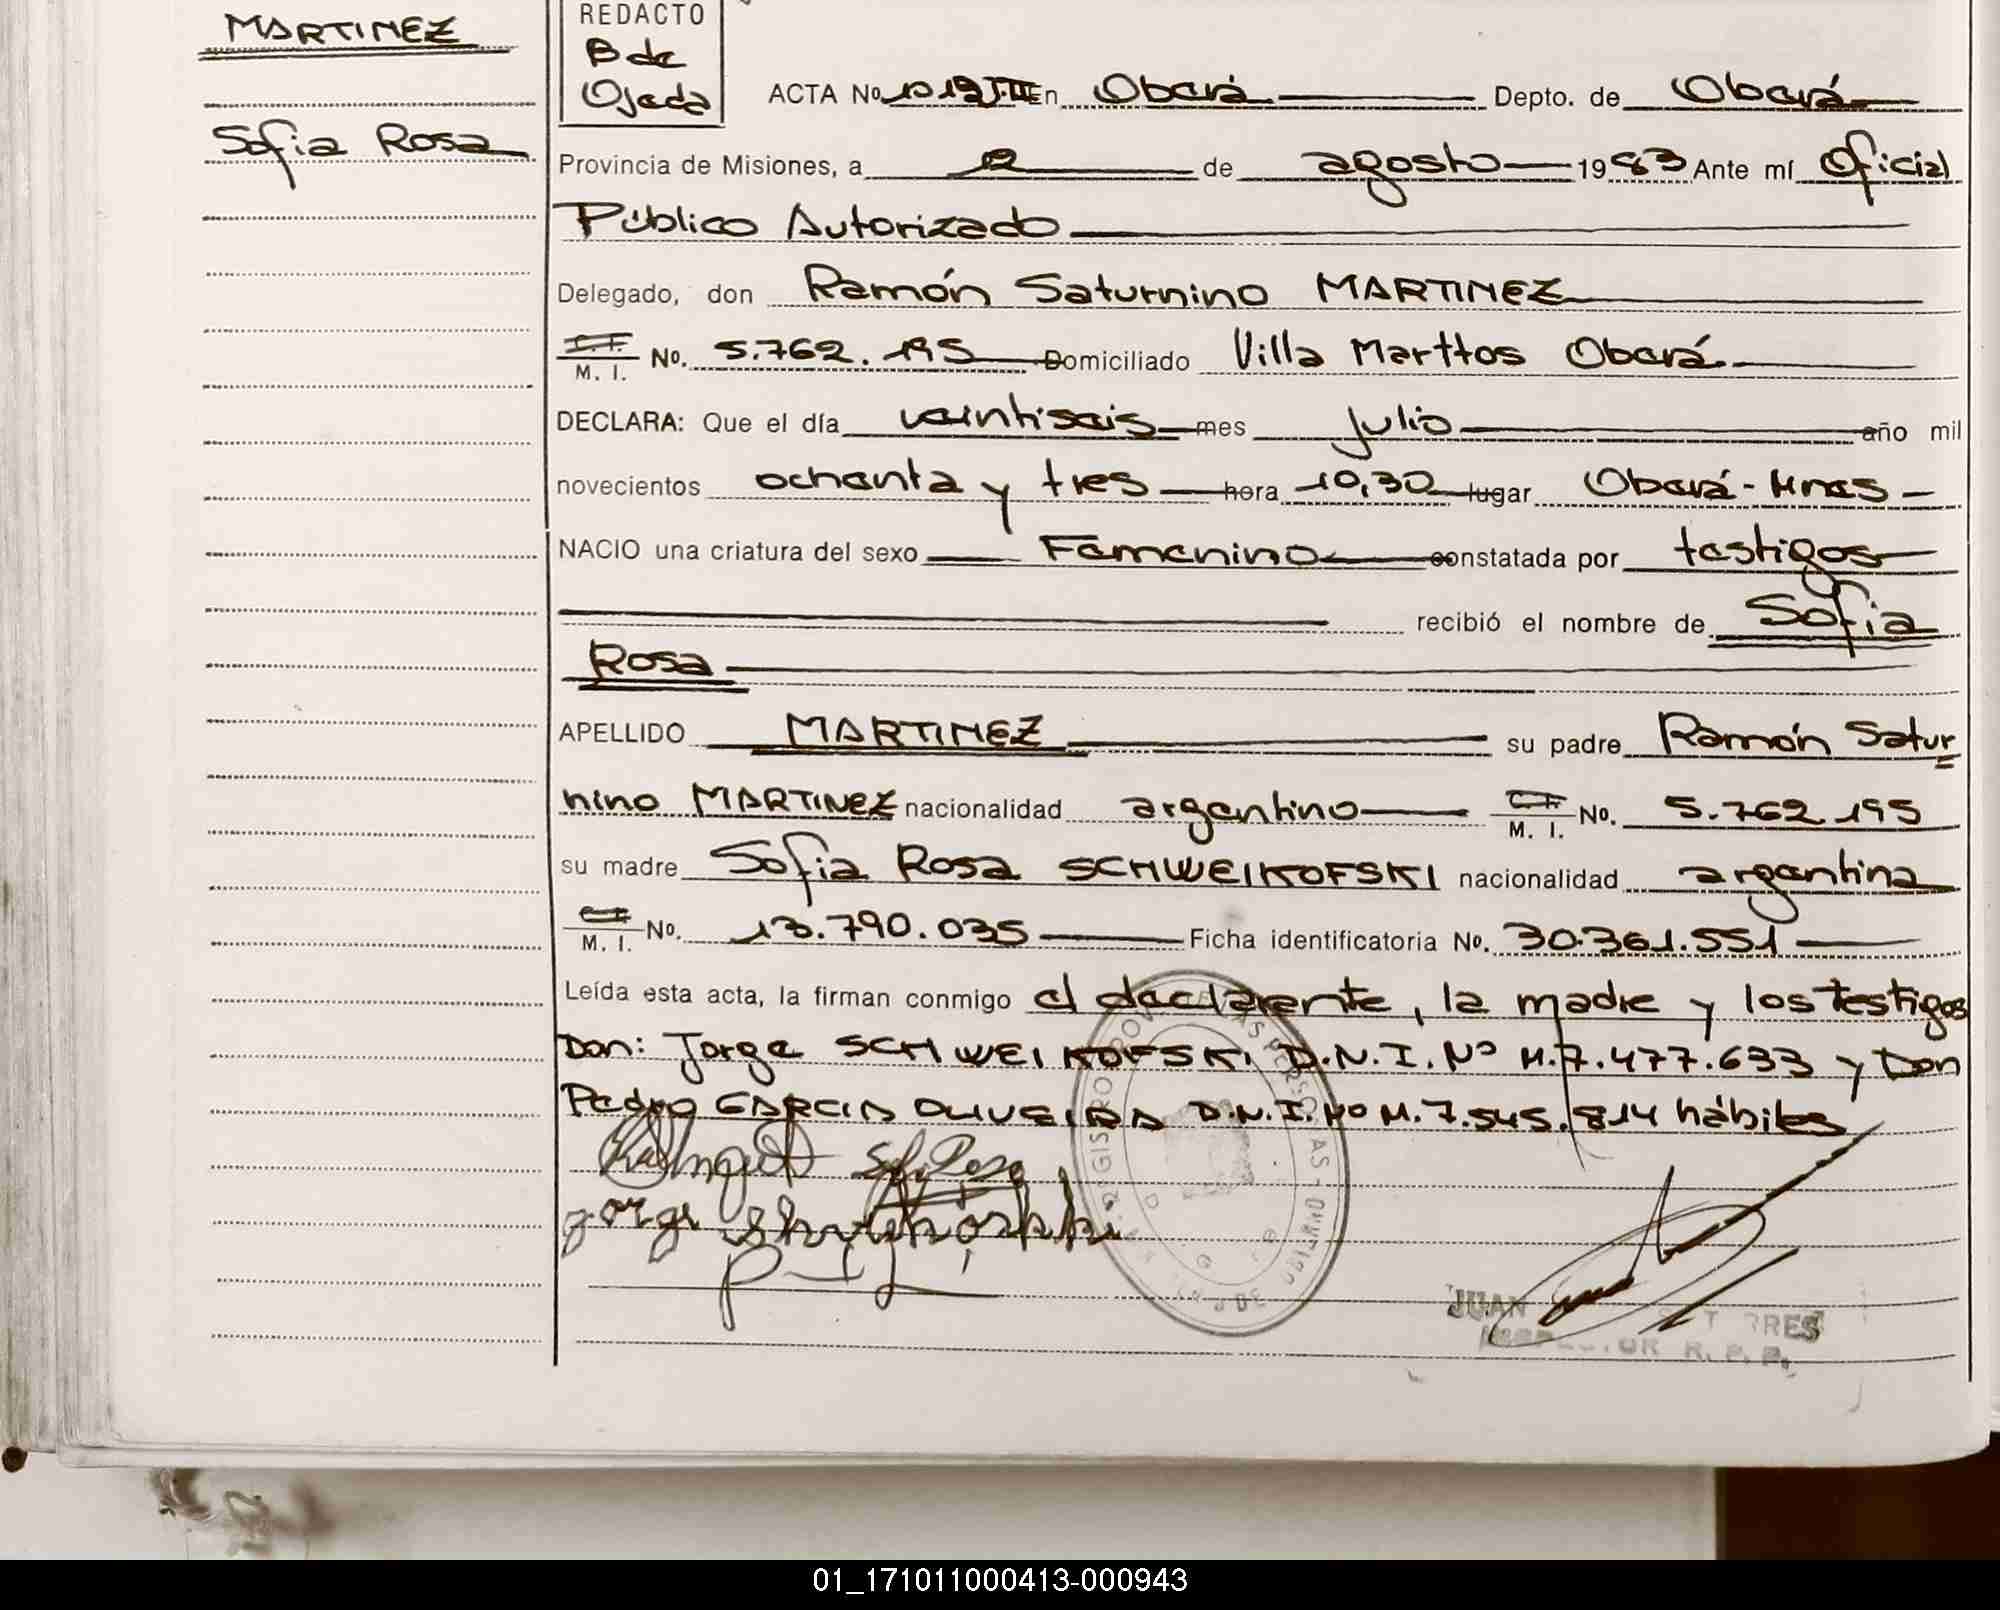 MARTINEZ
Sofia Rosa
REDACTO
B de
Ojeda
ACTA No 1019 T.III En Oberá Depto. de Oberá
Provincia de Misiones, a 2 de agosto 1983 Ante mí Oficial
Público Autorizado
Delegado, don Ramón Saturnino MARTINEZ
M. I. No. 5.762.195 Domiciliado Villa Marttos Oberá
DECLARA: Que el día veintiseis mes julio año mil
novecientos ochenta y tres hora 10,30 lugar Oberá - Mnes
NACIO una criatura del sexo Femenino constatada por testigos
recibió el nombre de Sofia
Rosa
APELLIDO MARTINEZ su padre Ramón Satur
nino MARTINEZ nacionalidad argentino C.I. M. I. No. 5.762.195
su madre Sofia Rosa SCHWEIKOFSKI nacionalidad argentina
C.I. M. I. No. 13.790.035 Ficha identificatoria No. 30.361.551
Leída esta acta, la firman conmigo el declarente, la madre y los testigos
Don: Jorge SCHWEIKOFSKI D.N.I. No M.7.477.633 y Don
Pedro GARCIA OLIVEIRA D.N.I. No M.7.545.814 hábiles
Sofia Rosa
Jorge
JUAN
INSPECTOR R. P. P.
01_171011000413-000943